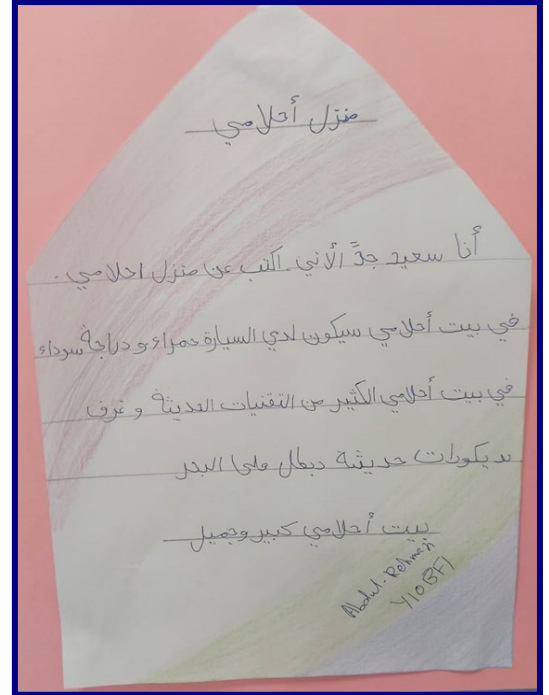 منزل أحلامي
أنا سعيد جدًّ الأني اكتب عن منزل احلامي.
في بيت أحلامي سيكون لدي السيارة حمراء و دراجة سوداء
في بيت أحلامي الكثير من التقنيات الحديثة و غرف
بديكورات حديثة البحر
بيت أحلامي كبير وجميل
Abdul-Rehman
Y10BF1